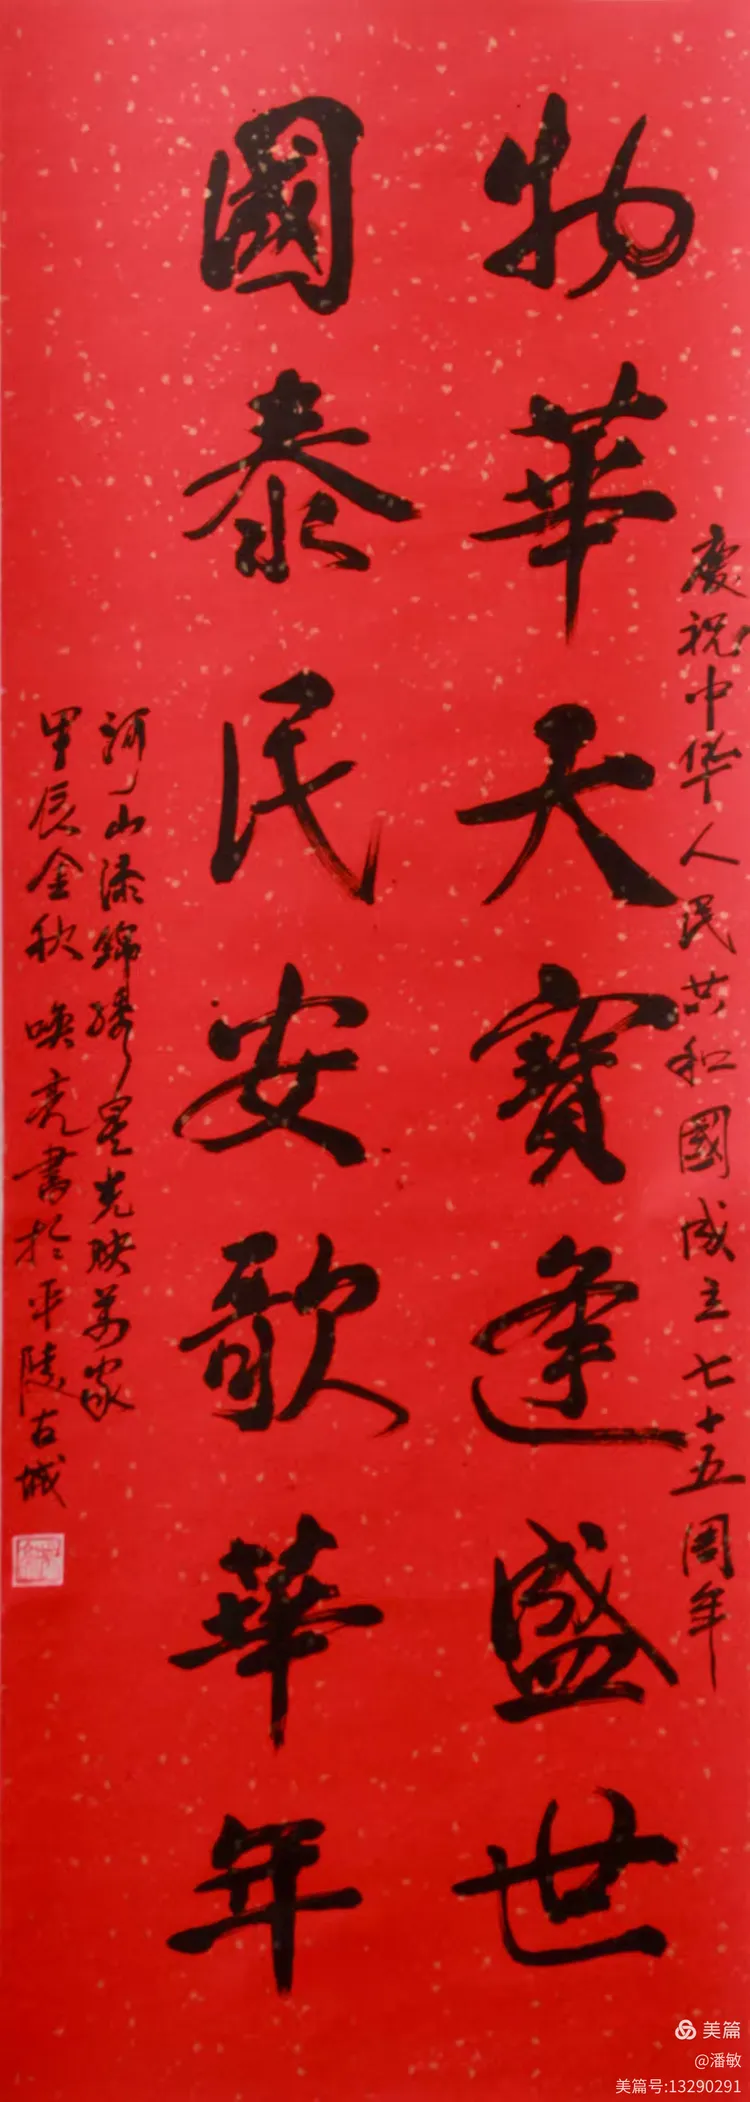 慶祝中华人民共和國成立七十五周年
物華天寶逢盛世
國泰民安歌華年
河山添錦繡星光映萬家
甲辰金秋 喚亮書於平陵古城
美篇
@潘敏
美篇号:13290291